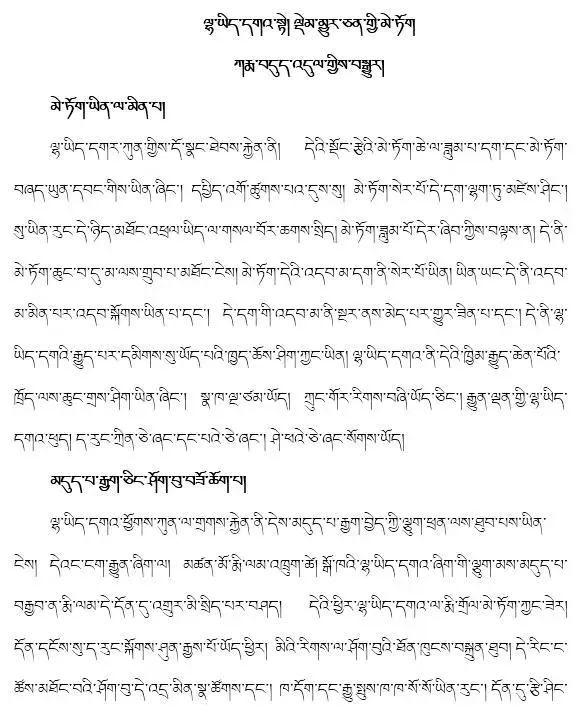 ལྷ་ཡིད་དགའ་སྟེ། ལྡེམ་མྱུར་ཅན་གྱི་མེ་ཏོག
ཀརྨ་བདུད་འདུལ་གྱིས་བསྒྱུར།
མེ་ཏོག་ཡིན་ལ་མིན་པ།
ལྷ་ཡིད་དགར་ཀུན་གྱིས་དོ་སྣང་ཐེབས་རྐྱེན་ནི། དེའི་སྡོང་རྩེའི་མེ་ཏོག་ཆེ་ལ་ཟླུམ་པ་དག་དང་མེ་ཏོག་
བཞད་ཡུན་དབང་གིས་ཡིན་ཞིང་། དཔྱིད་འགོ་ཚུགས་པའ་དུས་སུ། མེ་ཏོག་སེར་པོ་དེ་དག་ལྷག་ཏུ་མཛེས་ཤིང་།
སུ་ཡིན་རུང་དེ་ཉིད་མཐོང་འཕྲལ་ཡིད་ལ་གསལ་པོར་ཆགས་སྲིད། མེ་ཏོག་ཟླུམ་པོ་དེར་ཞིབ་ཀྱིས་བལྟས་ན། དེ་ནི་
མེ་ཏོག་ཆུང་བ་དུ་མ་ལས་གྲུབ་པ་མཐོང་ངེས། མེ་ཏོག་དེའི་འདབ་མ་དག་ནི་སེར་པོ་ཡིན། ཡིན་ཡང་དེ་ནི་འདབ་
མ་མིན་པར་འདབ་སྐོགས་ཡིན་པ་དང་། དེ་དག་གི་འདབ་མ་ནི་སྔར་ནས་མེད་པར་གྱུར་ཟིན་པ་དང་། དེ་ནི་ལྷ་
ཡིད་དགའི་རྒྱུད་པར་དམིགས་སུ་ཡོད་པའི་ཁྱད་ཆོས་ཤིག་ཀྱང་ཡིན། ལྷ་ཡིད་དགའ་ནི་དེའི་ཁྱིམ་རྒྱུད་ཆེན་པོའི་
ཁྲོད་ལས་ཆུང་གྲས་ཤིག་ཡིན་ཞིང་། སྣ་ཁ་ལྔ་ཙམ་ཡོད། ཀྲུང་གོར་རིགས་བཞི་ཡོད་ཅིང་། རྒྱུན་ལྡན་གྱི་ལྷ་ཡིད་
དགའ་ཕུད། ད་རུང་ཀྲིན་ཅེ་ཞང་དང་པའེ་ཅེ་ཞང་། ཤེ་ཕའེ་ཅེ་ཞང་སོགས་ཡོད།
མདུད་པ་རྒྱག་ཅིང་ཤོག་བུ་བཟོ་ཆོག་པ།
ལྷ་ཡིད་དགའ་ཕྱོགས་ཀུན་ལ་གྲགས་རྐྱེན་ནི་དེས་མདུད་པ་རྒྱག་བྱེད་ཀྱི་ལྕུག་ཕྲན་ལས་ཐུབ་པས་ཡིན་
ངེས། དེའང་ངག་རྒྱུན་ཞིག་ལ། མཚན་མོ་རྨི་ལམ་འཁྲུག་ཚེ། སྒོ་ཁའི་ལྷ་ཡིད་དགའ་ཞིག་གི་ལྕུག་མས་མདུད་པ་
བརྒྱབ་ན་རྨི་ལམ་དེ་དོན་དུ་འགྱུར་མི་སྲིད་པར་བཤད། དེའི་ཕྱིར་ལྷ་ཡིད་དགའ་ལ་རྨི་གྲོལ་མེ་ཏོག་ཀྱང་ཟེར།
དོན་དངོས་སུ་ད་རུང་སྐོགས་ཤུན་རྒྱས་པོ་ཡོད་ཕྱིར། མིའི་རིགས་ལ་ཤོག་བུའི་ཐོན་ཁུངས་བསྐྲུན་ཐུབ། དེ་རིང་ང་
ཚོས་མཐོང་བའི་ཤོག་བུ་དེ་འདྲ་མིན་སྣ་ཚོགས་དང་། ཁ་དོག་དང་རྒྱུ་སྤུས་ཁ་ཁ་སོ་སོ་ཡིན་རུང་། དོན་དུ་རྩི་ཤིང་